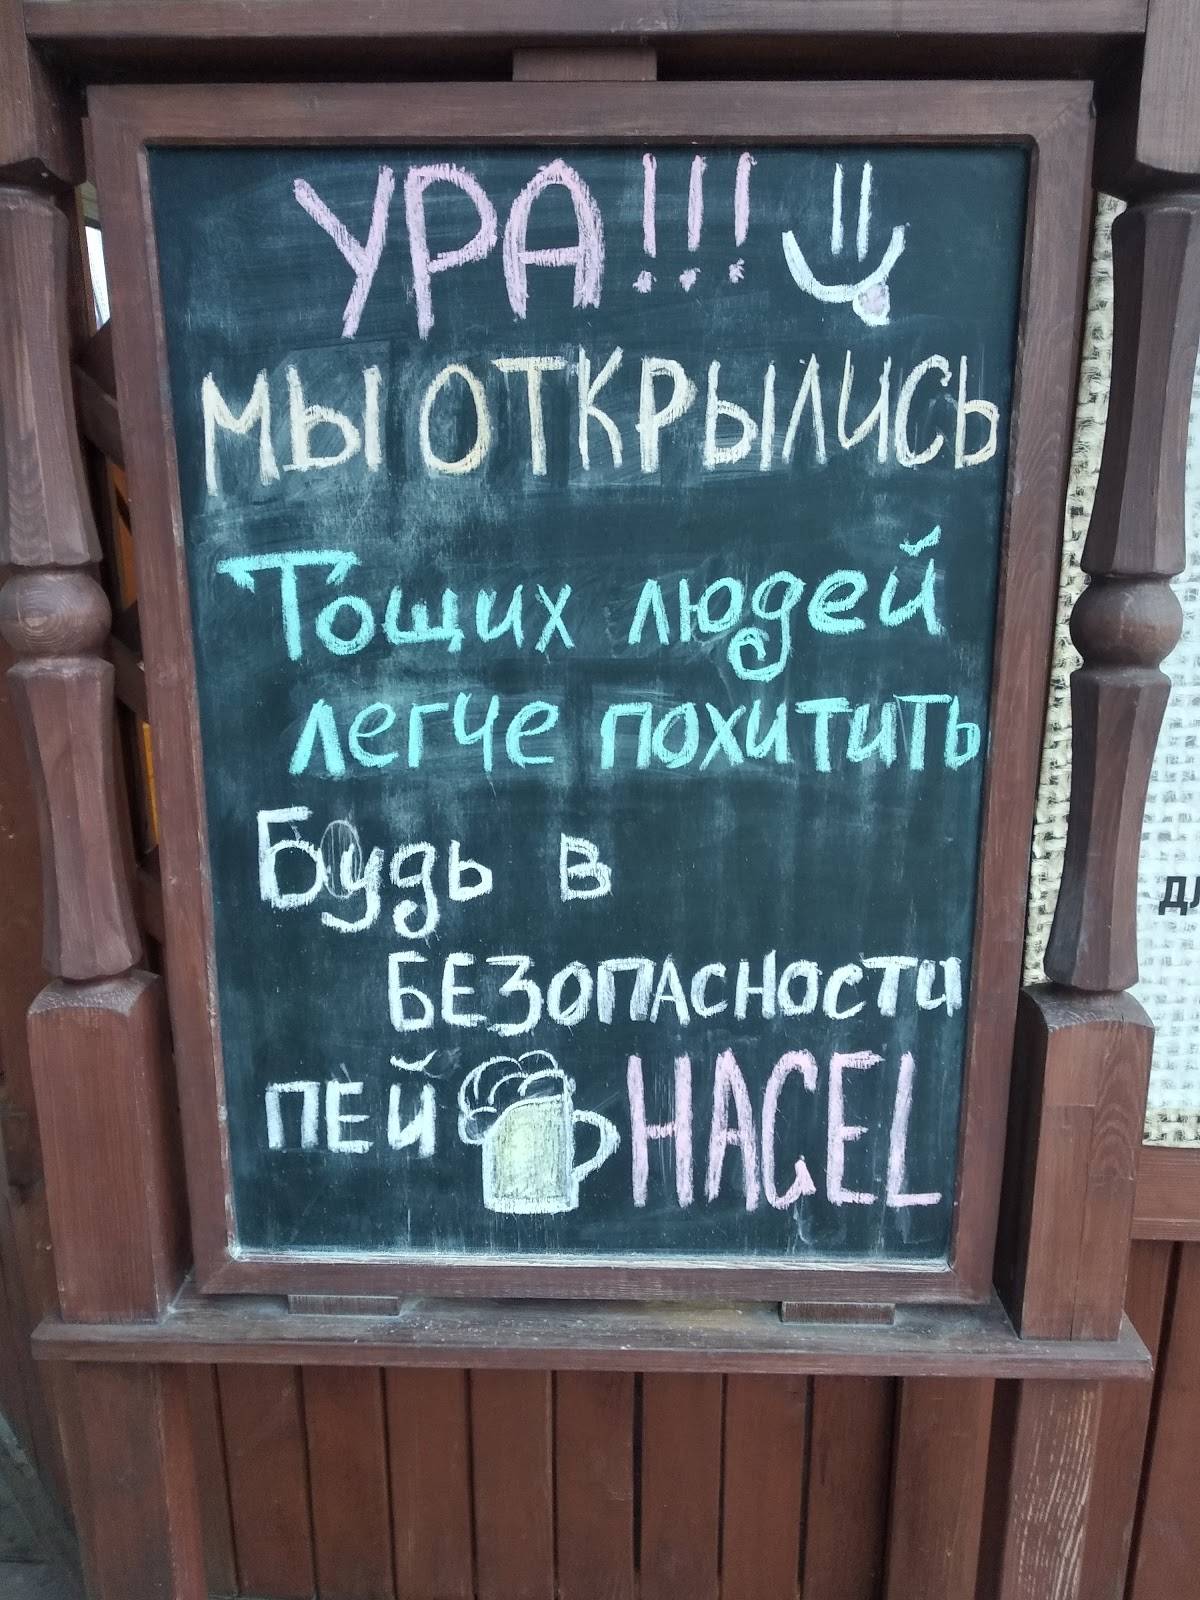 УРА!!!
МЫ ОТКРЫЛИСЬ
Тощих людей
легче похитить
Будь в
БЕЗОПАСНОСТИ
ПЕЙ HAGEL
ДЛ